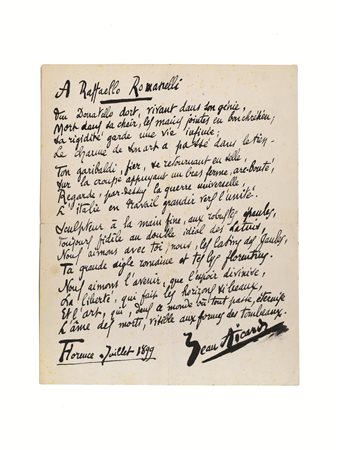 A Raffaello Romanelli
Ton Donatello dort, vivant dans son génie,
Mort dans sa chair, les mains jointes en bon chrétien;
Sa rigidité garde une vie infinie;
Le charme de son art a passé dans le tien.
Ton Garibaldi, fier, se retournant en selle,
Sur la croupe appuyant un bras ferme, arc-bouté,
Regarde, par-dessus la guerre universelle,
L'Italie en travail grandir vers l'unité.
Sculpteur à la main fine, aux robustes épaules,
Toujours fidèle au double idéal des Latins,
Nous aimons avec toi, nous, les latins des Gaules,
Ta grande aigle romaine et tes lys florentins.
Nous aimons l'avenir, que l'espoir divinise,
La liberté, qui fait les horizons si beaux,
Et l'art, qui, dans ce monde où tout passe, éternise
L'âme des morts, visible aux formes des tombeaux.
Florence Juillet 1899
Jean Aicard